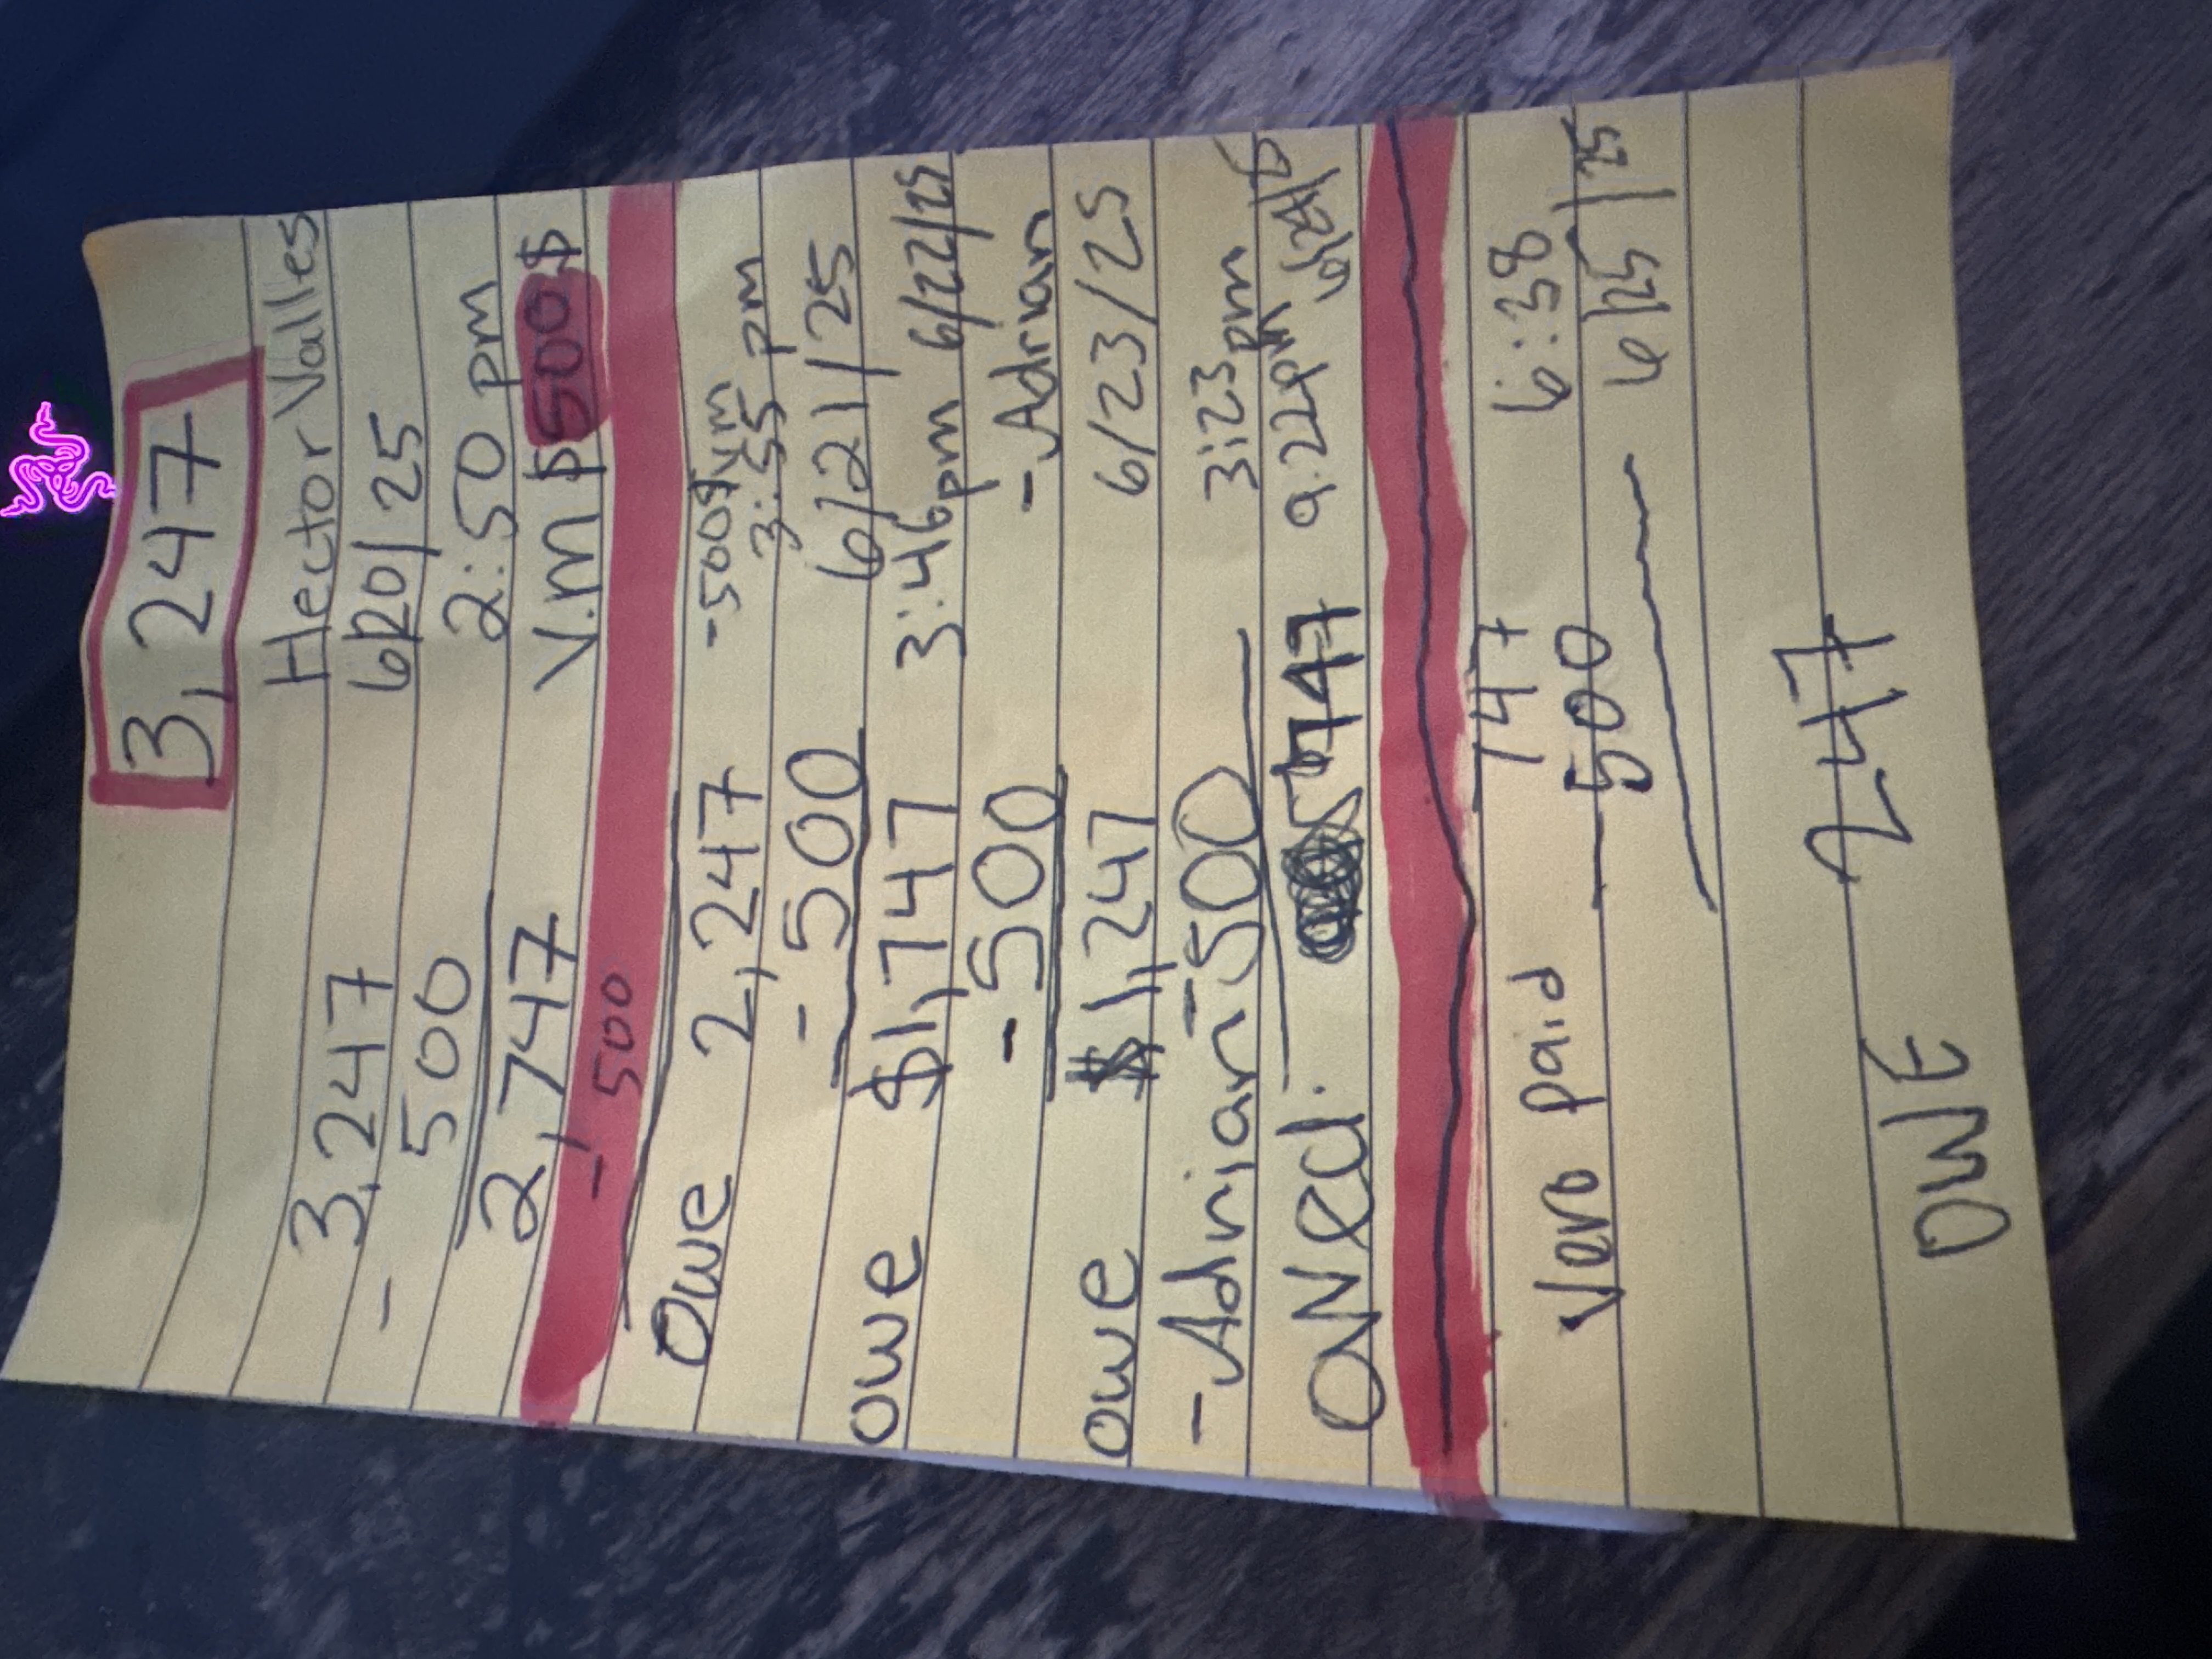 3,247
Hector Valles
3,247 6/20/25
- 500 2:50 pm
2,747 V.m $500$
- 500
Owe 2,247 -500$ v.m
3:55 pm
- 500 6/21/25
owe $1,747 3:46pm 6/22/25
- 500 - Adrian
owe $1,247 6/23/25
- Adrian - 500 3:23 pm
OWed. 747 9:22pm 6/24/25
747 6:38
Vero paid - 500 6/25/25
247
OWE